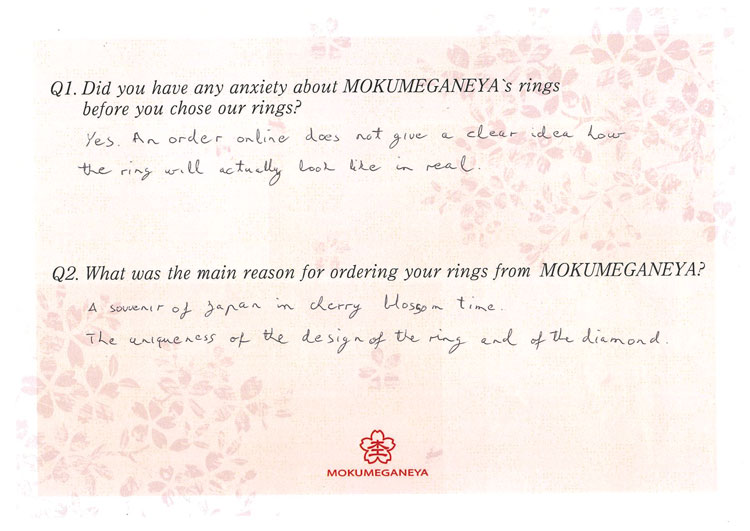 Q1. Did you have any anxiety about MOKUMEGANEYA`s rings
before you chose our rings?
Yes. An order online does not give a clear idea how
the ring will actually look like in real.
Q2. What was the main reason for ordering your rings from MOKUMEGANEYA?
A souvenir of Japan in cherry blossom time.
The uniqueness of the design of the ring and of the diamond.
MOKUMEGANEYA